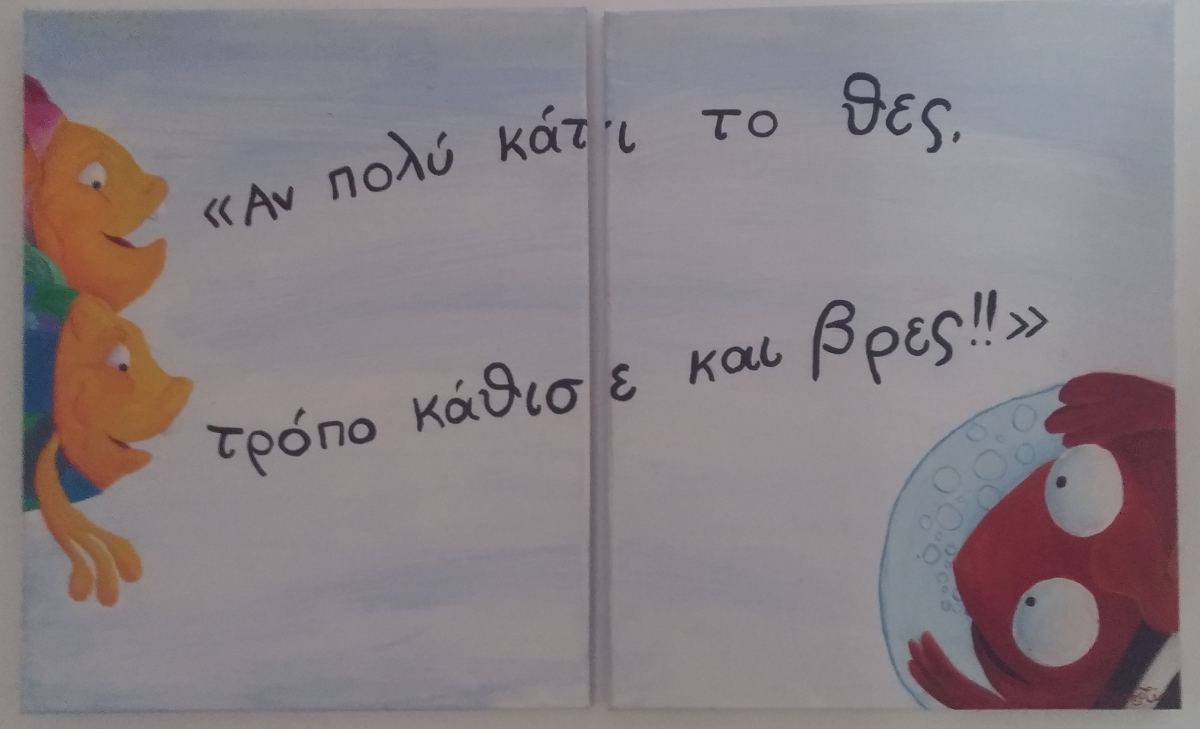 «Αν πολύ κάτι το θες,
τρόπο κάθισε και βρες!!»